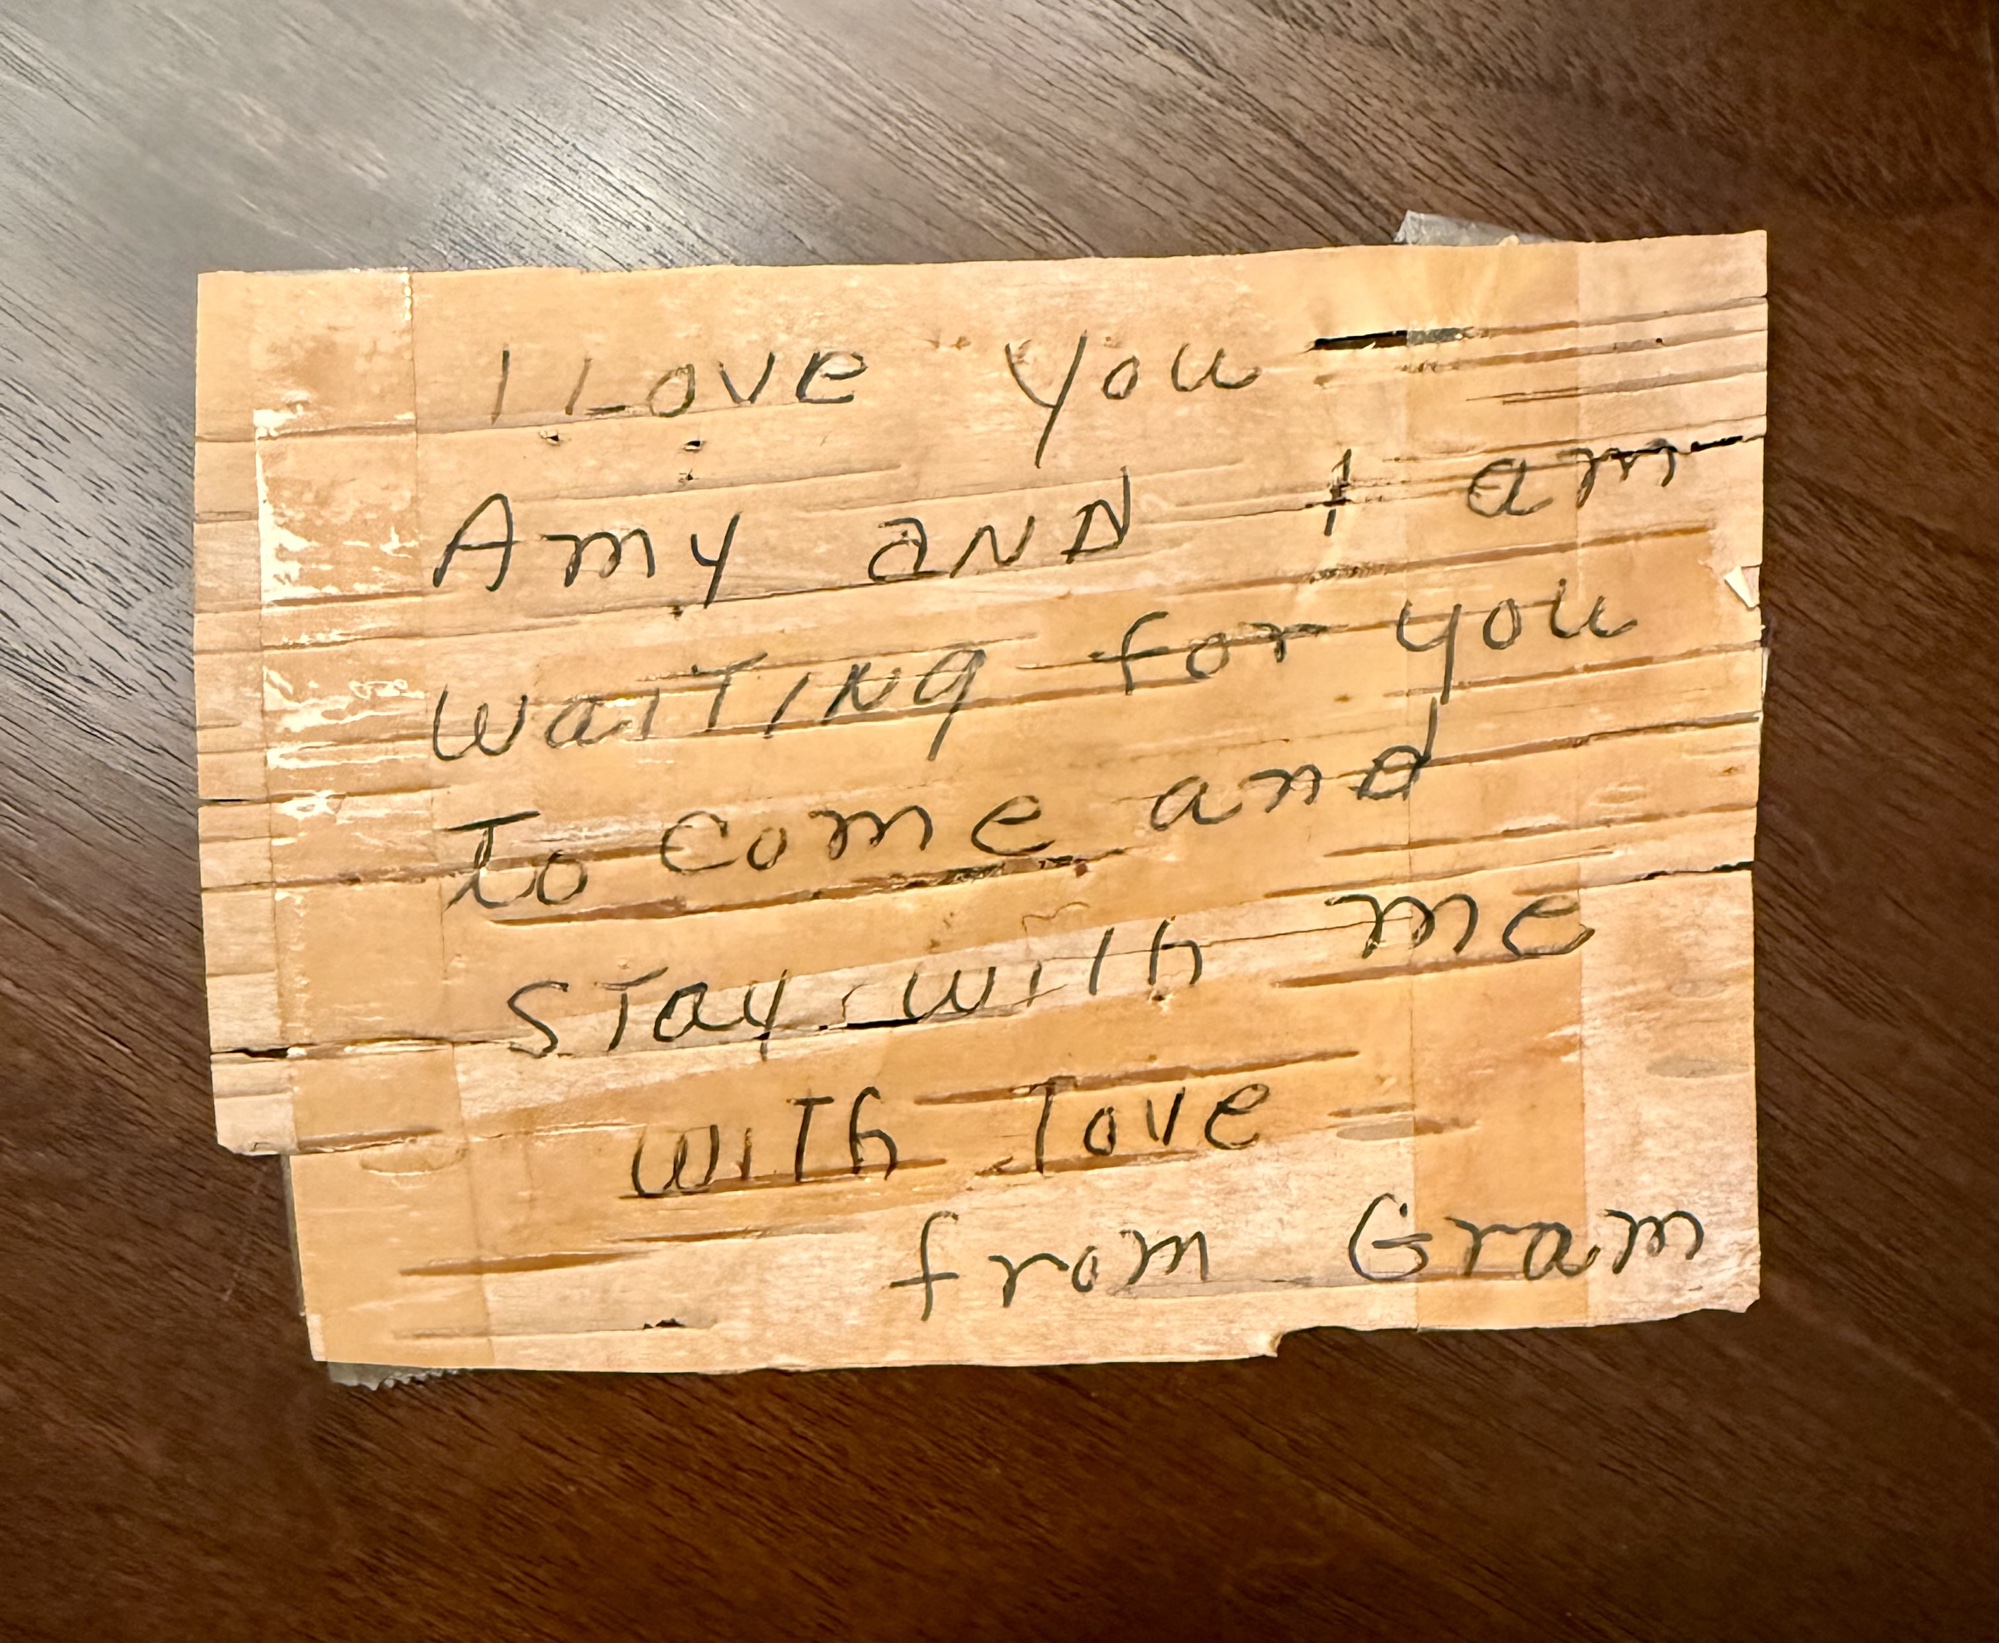 I Love you
Amy aND I am
waiTING for you
To come and
sTay with me
wiTh love
from Gram